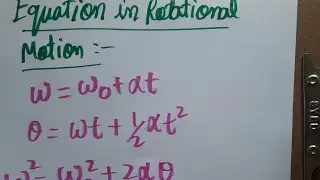 Equation in Rotational
Motion :-
ω = ω₀ + αt
θ = ωt + ½ αt²
ω² = ω₀² + 2αθ